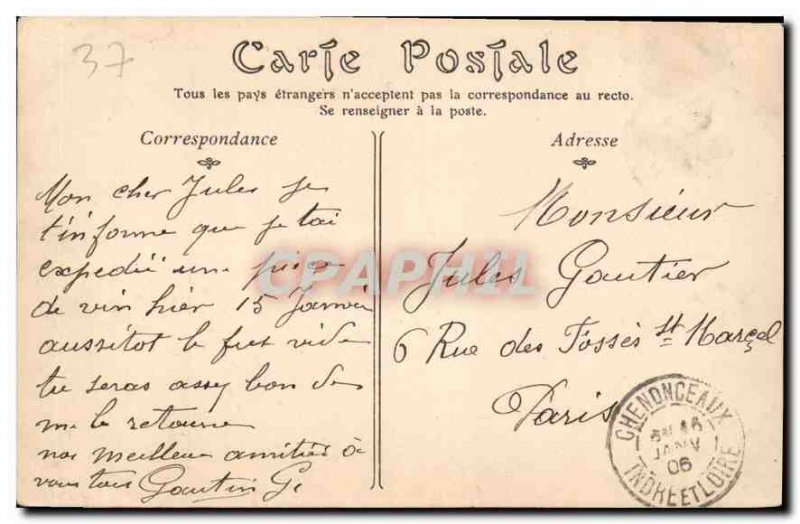 37
Carte Postale
Tous les pays étrangers n'acceptent pas la correspondance au recto.
Se renseigner à la poste.
Correspondance
Mon cher Jules je
t'informe que je t'ai
expedié une piece
de vin hier 15 Janvier
aussitot le fut vide
tu seras assez bon de
me le retourner
nos meilleures amitiés à
vous tous Gautier G.
Adresse
Monsieur
Jules Gautier
6 Rue des Fossès St Marçel
Paris
CHENONCEAUX
16
JANV
06
INDRE ET LOIRE
CPAPHIL